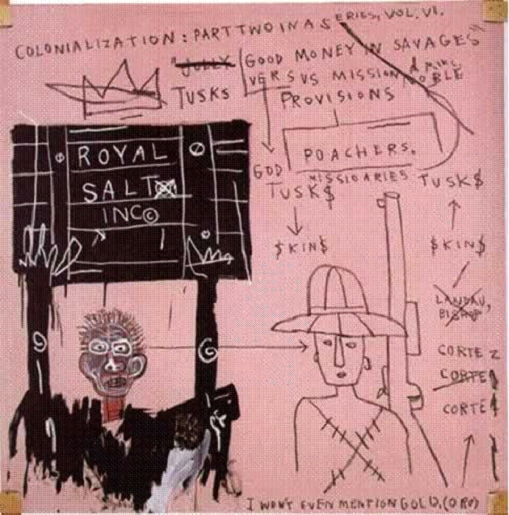 COLONIALIZATION: PART TWO IN A SERIES, VOL. VI.
"JOLLY GOOD MONEY IN SAVAGES"
TUSKS VERSUS MISSION
NOBLE
PROVISIONS
ROYAL
SALT
INC©
POACHERS.
MISSIONARIES
GOD
TUSK$
TUSK$
$KIN$
$KIN$
LANDAU,
BISHOP,
CORTEZ
CORTE
CORTE
I WON'T EVEN MENTION GOLD, (ORO)